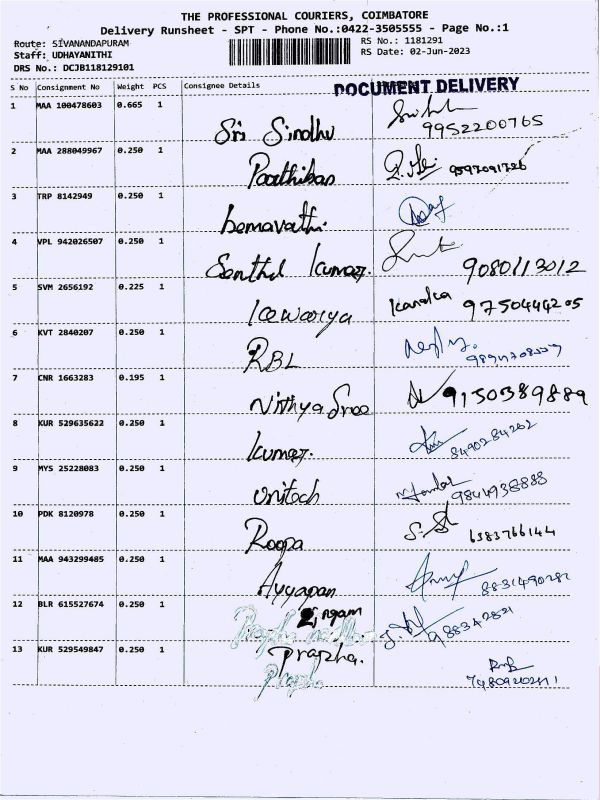 THE PROFESSIONAL COURIERS, COIMBATORE
Delivery Runsheet - SPT - Phone No.:0422-3505555 - Page No.:1
Route: SIVANANDAPURAM RS No.: 1181291
Staff: UDHAYANITHI RS Date: 02-Jun-2023
DRS No.: DCJB118129101
S No Consignment No Weight PCS Consignee Details DOCUMENT DELIVERY
1 MAA 100478603 0.665 1 Sri Sindhu 9952200765
2 MAA 288049967 0.250 1 Parthiban
3 TRP 8142949 0.250 1 hemavathi
4 VPL 942026507 0.250 1 Senthil kumar. 9080113012
5 SVM 2656192 0.225 1 9750444205
6 KVT 2840207 0.250 1 RBL
7 CNR 1663283 0.195 1 Nithya Sree 9150389889
8 KUR 529635622 0.250 1 kumar. 8490284262
9 MYS 25228083 0.250 1 Unitech 9844938888
10 PDK 8120978 0.250 1 Roopa 6383766144
11 MAA 943299485 0.250 1 Ayyapan
12 BLR 615527674 0.250 1
13 KUR 529549847 0.250 1